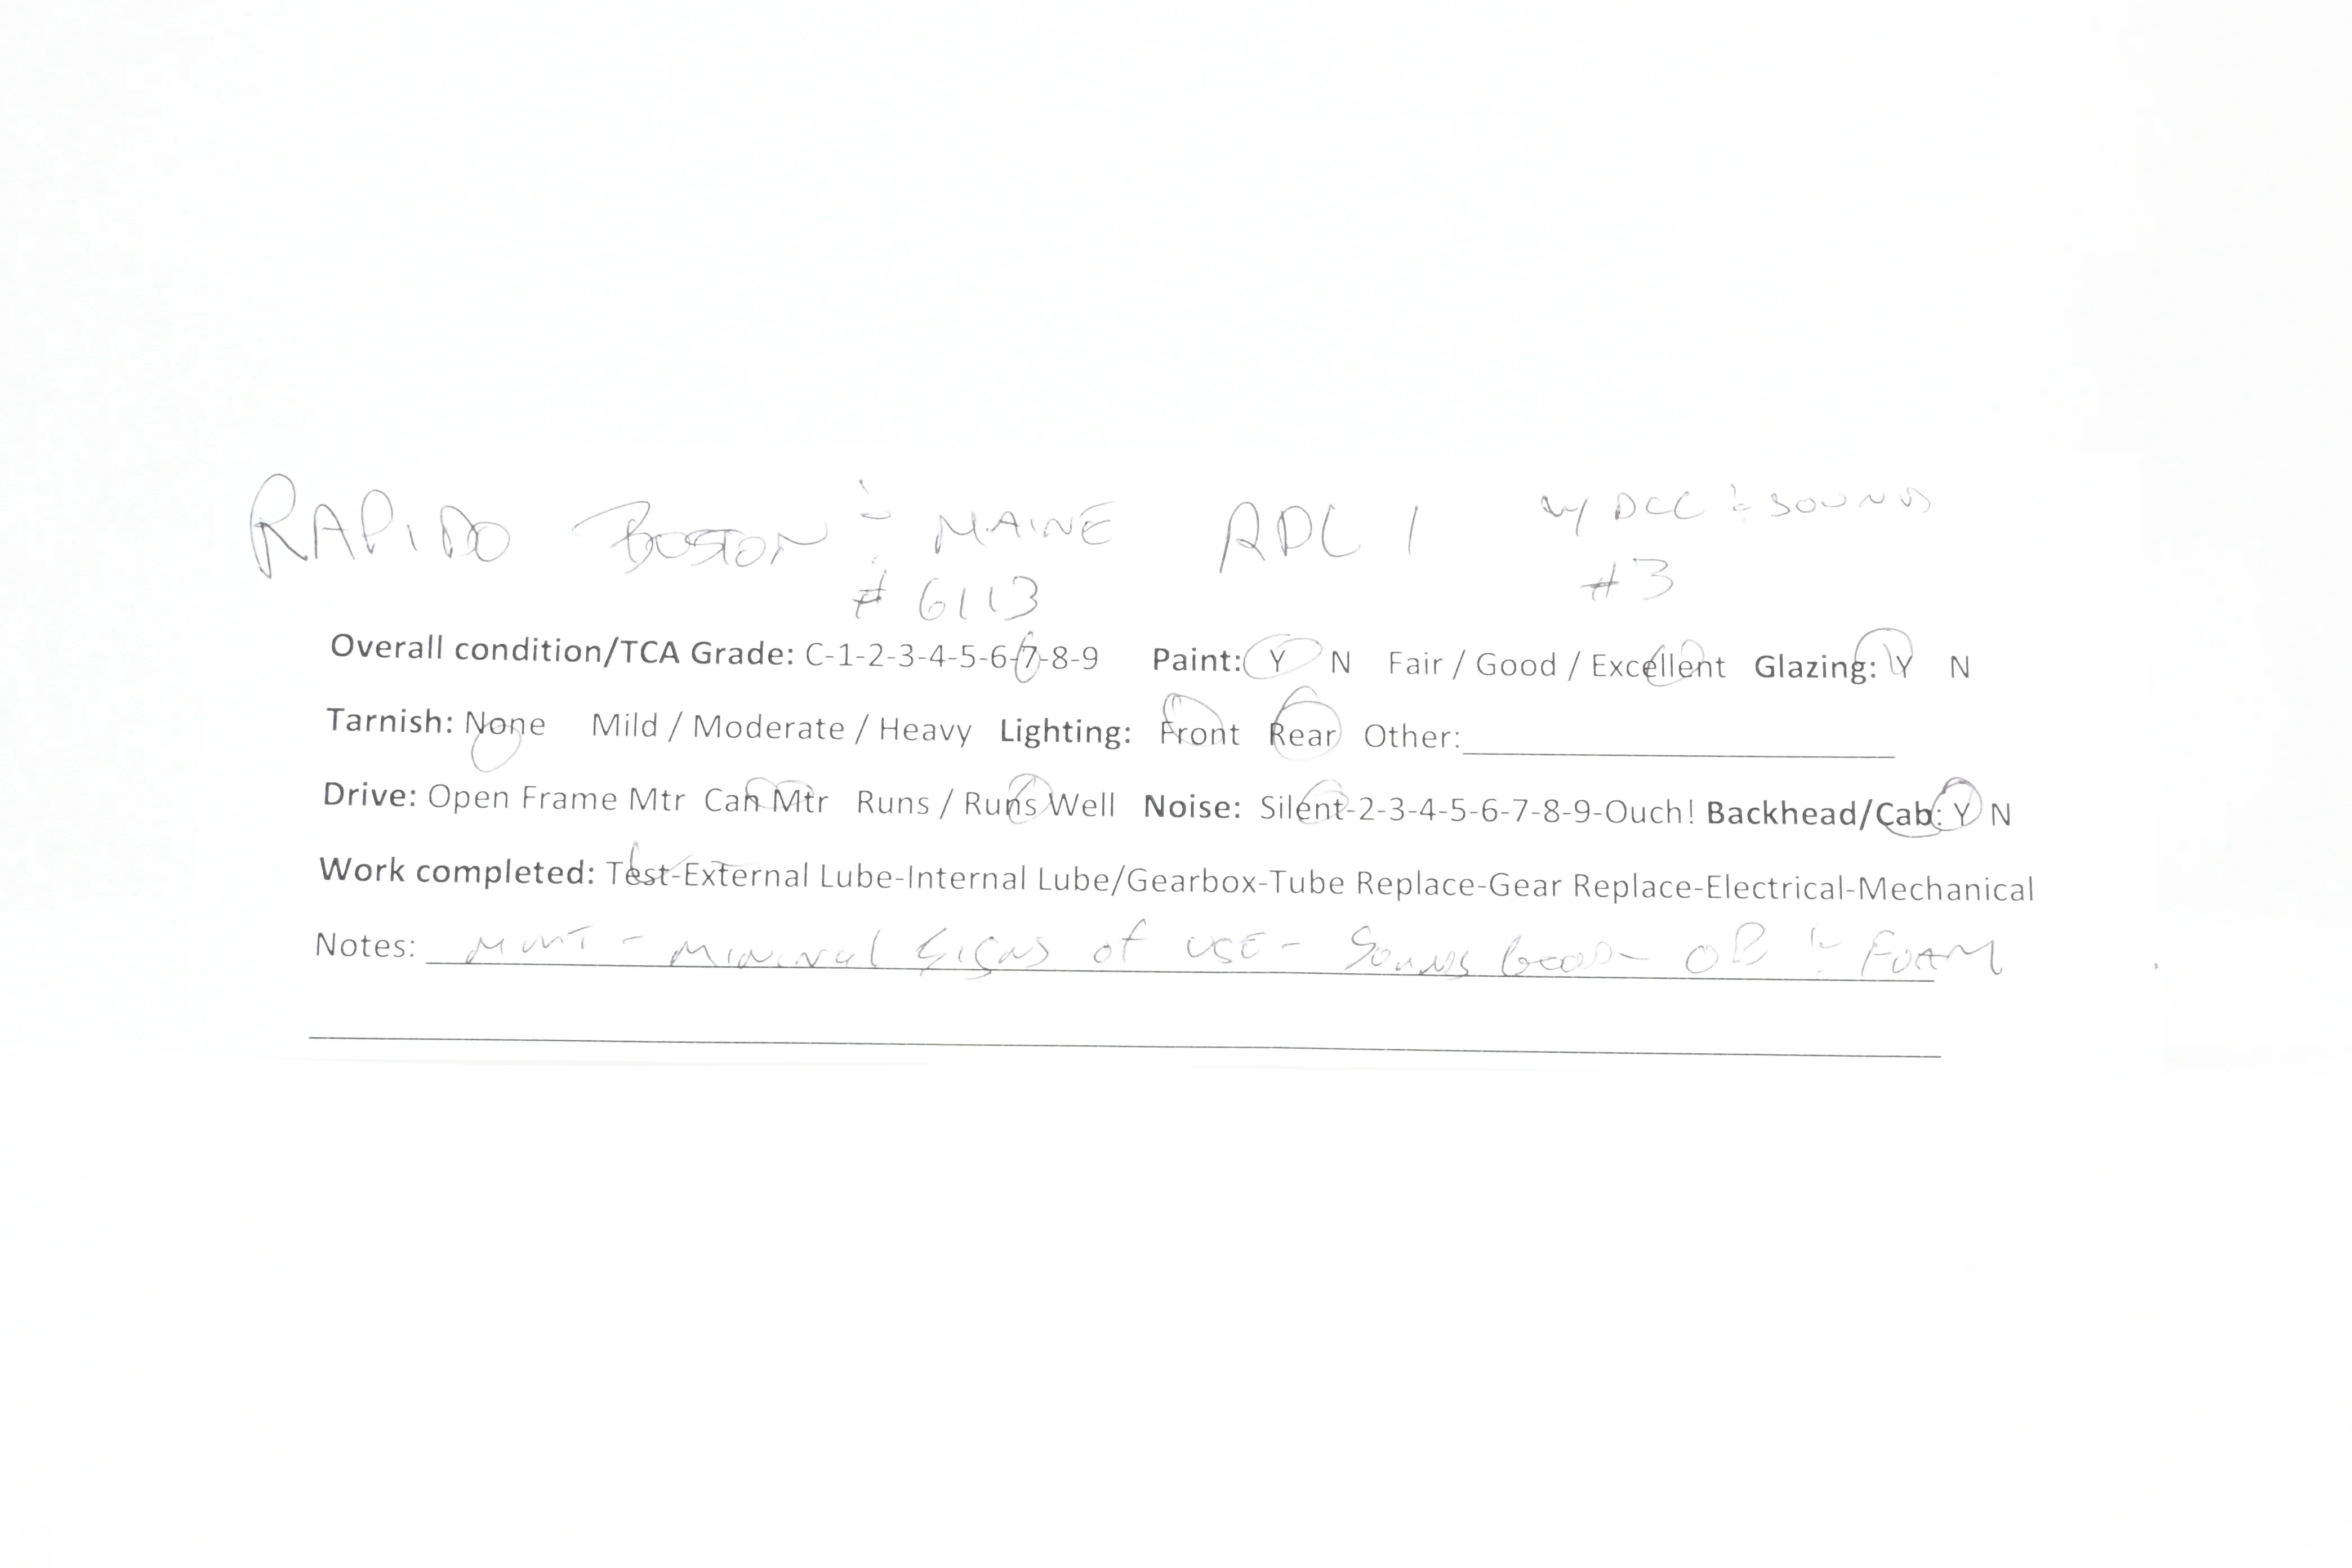 RAPIDO BOSTON & MAINE RDC 1 w/ DCC & SOUND
# 6113 #3
Overall condition/TCA Grade: C-1-2-3-4-5-6-7-8-9 Paint: Y N Fair / Good / Excellent Glazing: Y N
Tarnish: None Mild / Moderate / Heavy Lighting: Front Rear Other:
Drive: Open Frame Mtr Can Mtr Runs / Runs Well Noise: Silent-2-3-4-5-6-7-8-9-Ouch! Backhead/Cab: Y N
Work completed: Test-External Lube-Internal Lube/Gearbox-Tube Replace-Gear Replace-Electrical-Mechanical
Notes: MINT - MINIMAL SIGNS OF USE - SOUNDS GOOD - OB & FOAM